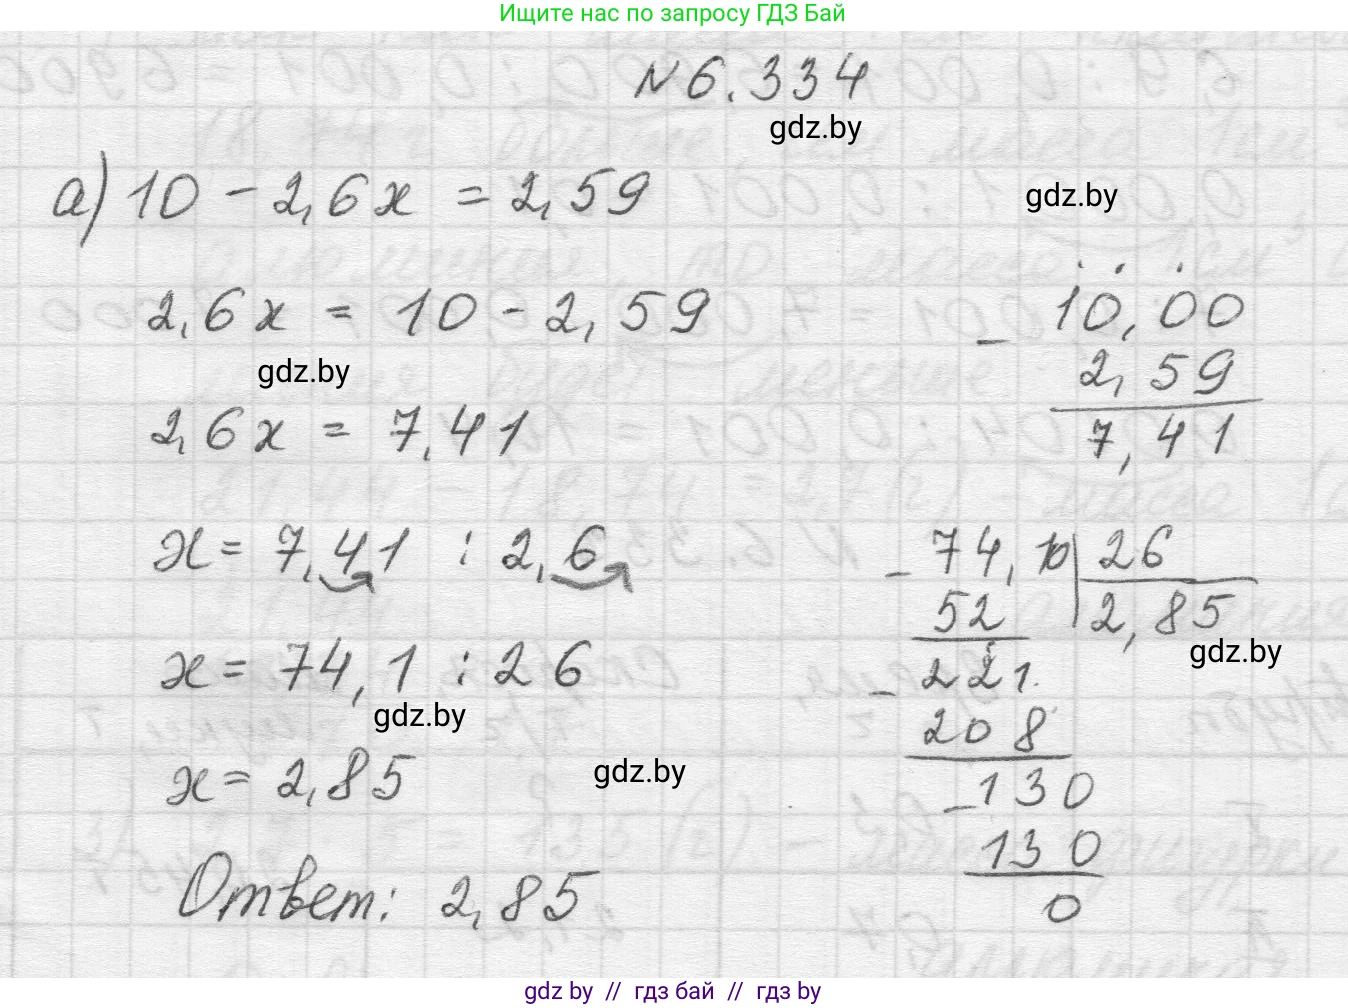 Ищите нас по запросу ГДЗ Бай
№6.334
gdz.by
а) 10 - 2,6x = 2,59
gdz.by
2,6x = 10 - 2,59
gdz.by
2,6x = 7,41
x = 7,41 : 2,6
x = 74,1 : 26
gdz.by
x = 2,85
gdz.by
Ответ: 2,85
10,00
- 2,59
7,41
- 74,10 | 26
52 | 2,85
gdz.by
- 221
208
- 130
130
0
gdz by // гдз бай // гдз by